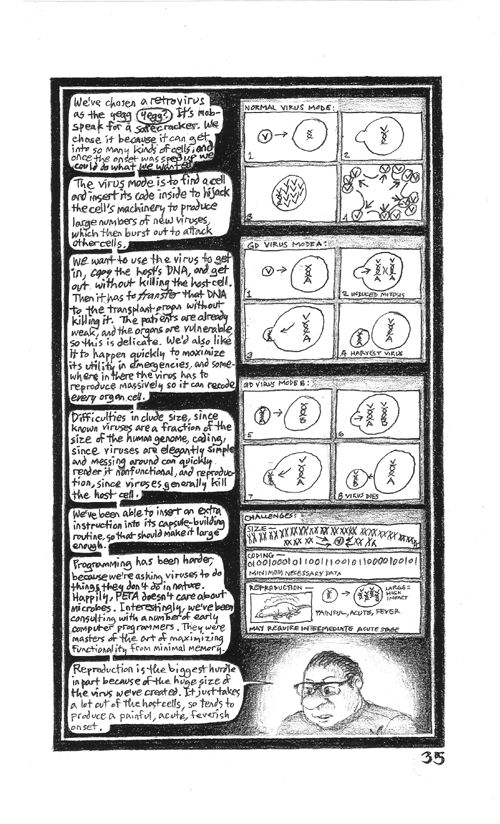 We've chosen a retrovirus
as the yegg (yegg?) It's mob-
speak for a safecracker. We
chose it because it can get
into so many kinds of cells, and
once the onset was sped up we
could do what we wanted.
The virus mode is to find a cell
and insert its code inside to hijack
the cell's machinery to produce
large numbers of new viruses,
which then burst out to attack
other cells.
We want to use the virus to get
in, copy the host's DNA, and get
out without killing the host cell.
Then it has to transfer that DNA
to the transplant organ without
killing it. The patients are already
weak, and the organs are vulnerable
so this is delicate. We'd also like
it to happen quickly to maximize
its utility in emergencies, and some-
where in there the virus has to
reproduce massively so it can recode
every organ cell.
Difficulties include size, since
known viruses are a fraction of the
size of the human genome, coding,
since viruses are elegantly simple
and messing around can quickly
render it nonfunctional, and reproduc-
tion, since viruses generally kill
the host cell.
We've been able to insert an extra
instruction into its capsule-building
routine, so that should make it large
enough.
Programming has been harder,
because we're asking viruses to do
things they don't do in nature.
Happily, PETA doesn't care about
microbes. Interestingly, we've been
consulting with a number of early
computer programmers. They were
masters of the art of maximizing
functionality from minimal memory.
Reproduction is the biggest hurdle
in part because of the huge size of
the virus we've created. It just takes
a lot out of the host cells, so tends to
produce a painful, acute, feverish
onset.
NORMAL VIRUS MODE:
1
2
3
4
GD VIRUS MODE A:
1
2 INDUCED MITOSIS
3
4 HARVEST VIRUS
GD VIRUS MODE B:
5
6
7
8 VIRUS DIES
CHALLENGES:
SIZE—
CODING—
MINIMUM NECESSARY DATA
REPRODUCTION
LARGE=
HIGH
IMPACT
PAINFUL, ACUTE, FEVER
MAY REQUIRE INTERMEDIATE ACUTE STAGE
35